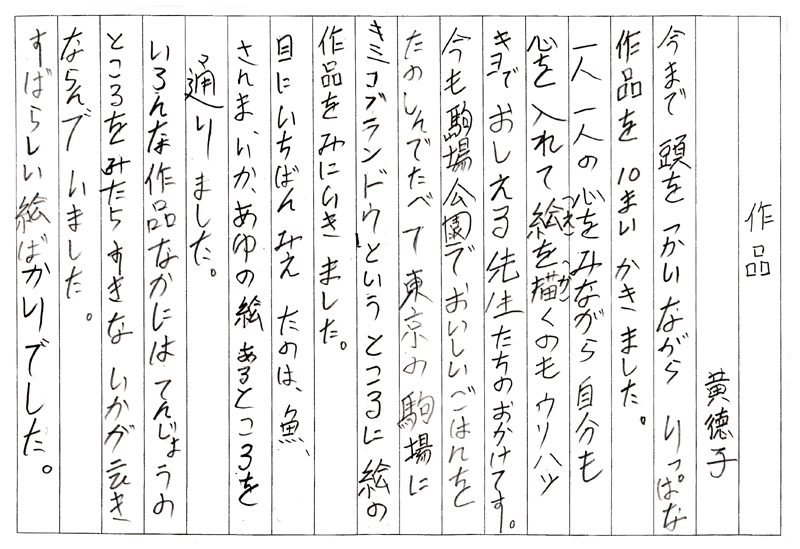 作品
黄徳子
今まで頭をつかいながらりっぱな
作品を10まいかきました。
一人一人の心をみながら自分も
心を入れて絵を描くのもウリハッ
キョでおしえる先生たちのおかけてす。
今も駒場公園でおいしいごはんを
たのしんでたべて東京の駒場に
キミコブランドウというところに絵の
作品をみにいきました。
目にいちばんみえたのは、魚、
さんま、いか、あゆの絵あるところを
通りました。
いろんな作品なかにはてんじょうの
ところをみたらすきないかが云き
ならんでいました。
すばらしい絵ばかりでした。